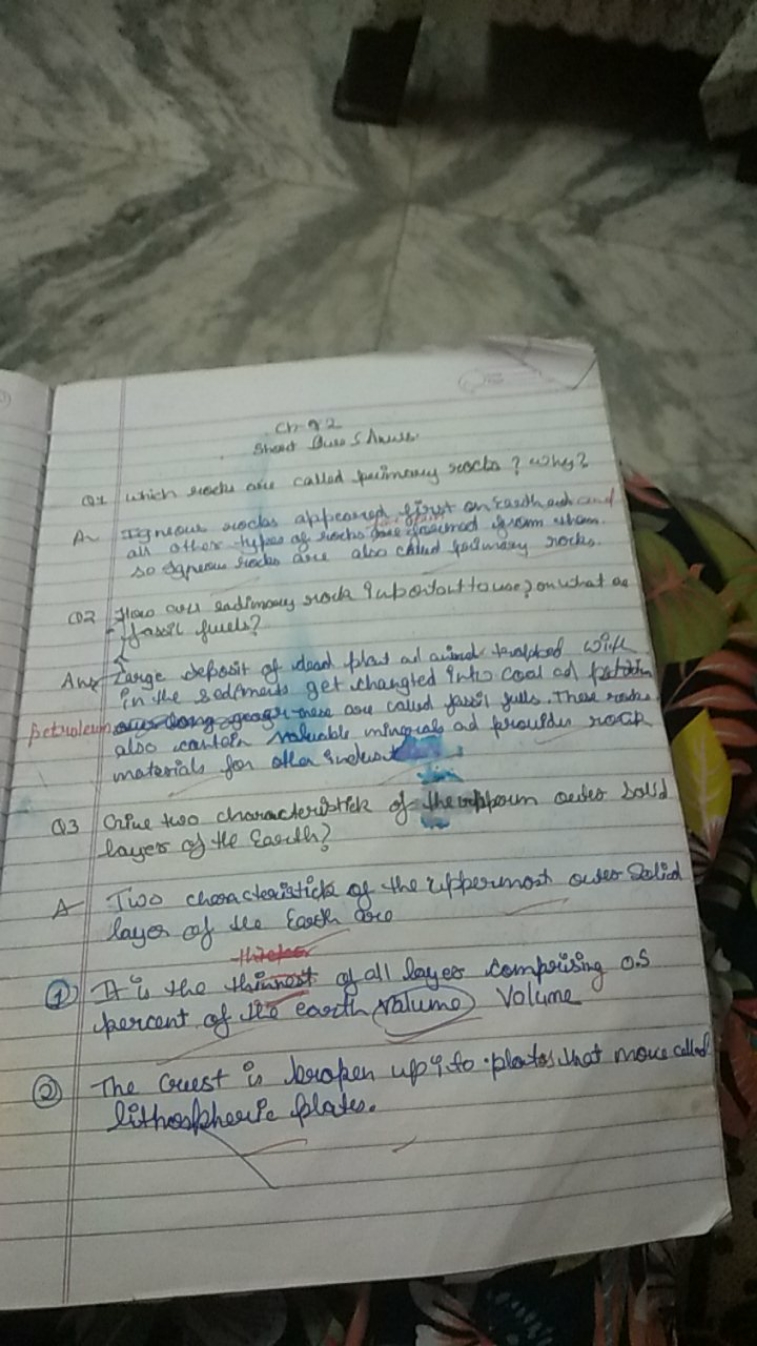 Ch 2
Short Ques & Answer
Q1 which rocks are called primary rocks? why?
A Igneous rocks appeared first on Earth and
all other types of rocks are formed from them.
so Igneous rocks are also called primary rocks.
Q2 How are rock important to use? on what
fossil fuels?
Ans Large deposit of dead plant ad animal with
in the sediments get changted into coal ad
petroleum these are called fassil fulls. These rocks
also cantain valuable minerals ad provides
materials for other
Q3 Give two characteristick of the outer solid
layer of the Earth?
A Two characteristick of the uppermost outer solid
layer of the Earth are
1 It is the thinnest of all layer comprising 0.5
percent of the earth volume Volume
2 The crust is broken up into plates that move called
lithospheric plates.